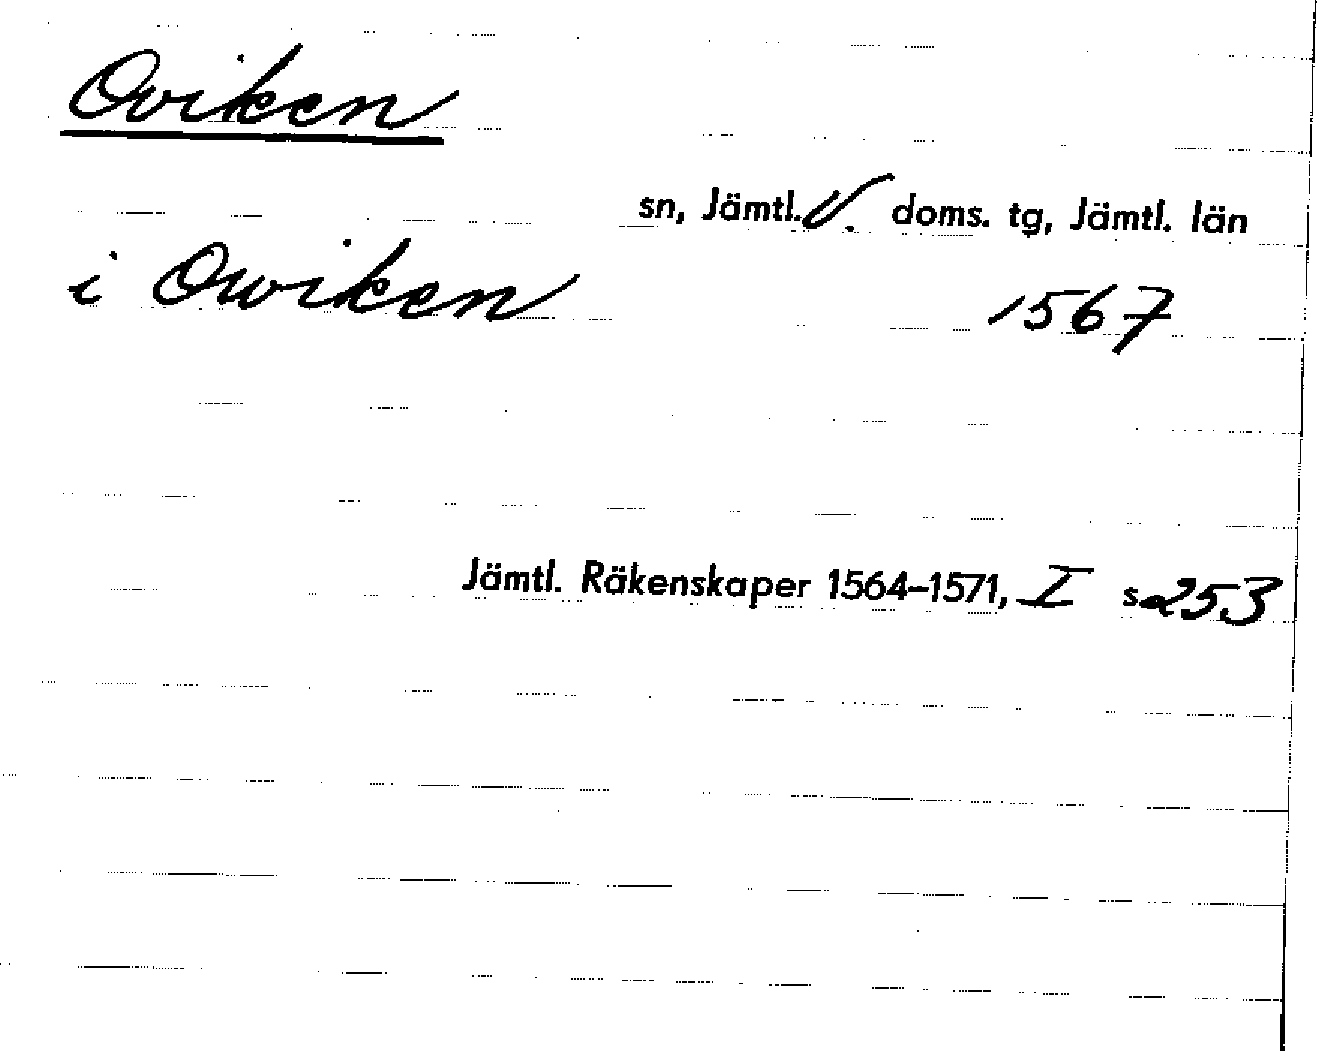 Oviken
sn, Jämtl. V. doms. tg, Jämtl. län
i Owiken 1567
Jämtl. Räkenskaper 1564–1571, I s 253